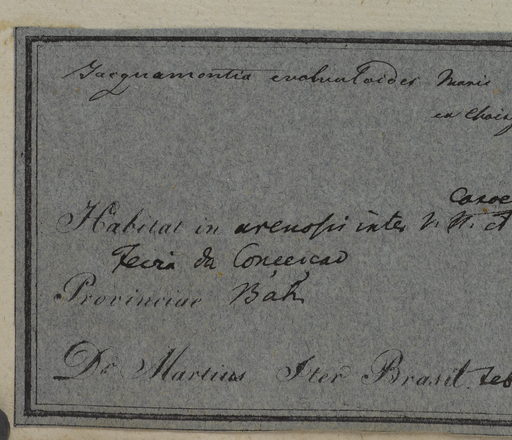 Jacquamontia evolvuloides Moric
ex Chois
Casoe
Habitat in arenosis inter V. N. et
Feira da Conceicao
Provinciae Bah.
Dr. Martius Iter Brasil. Feb